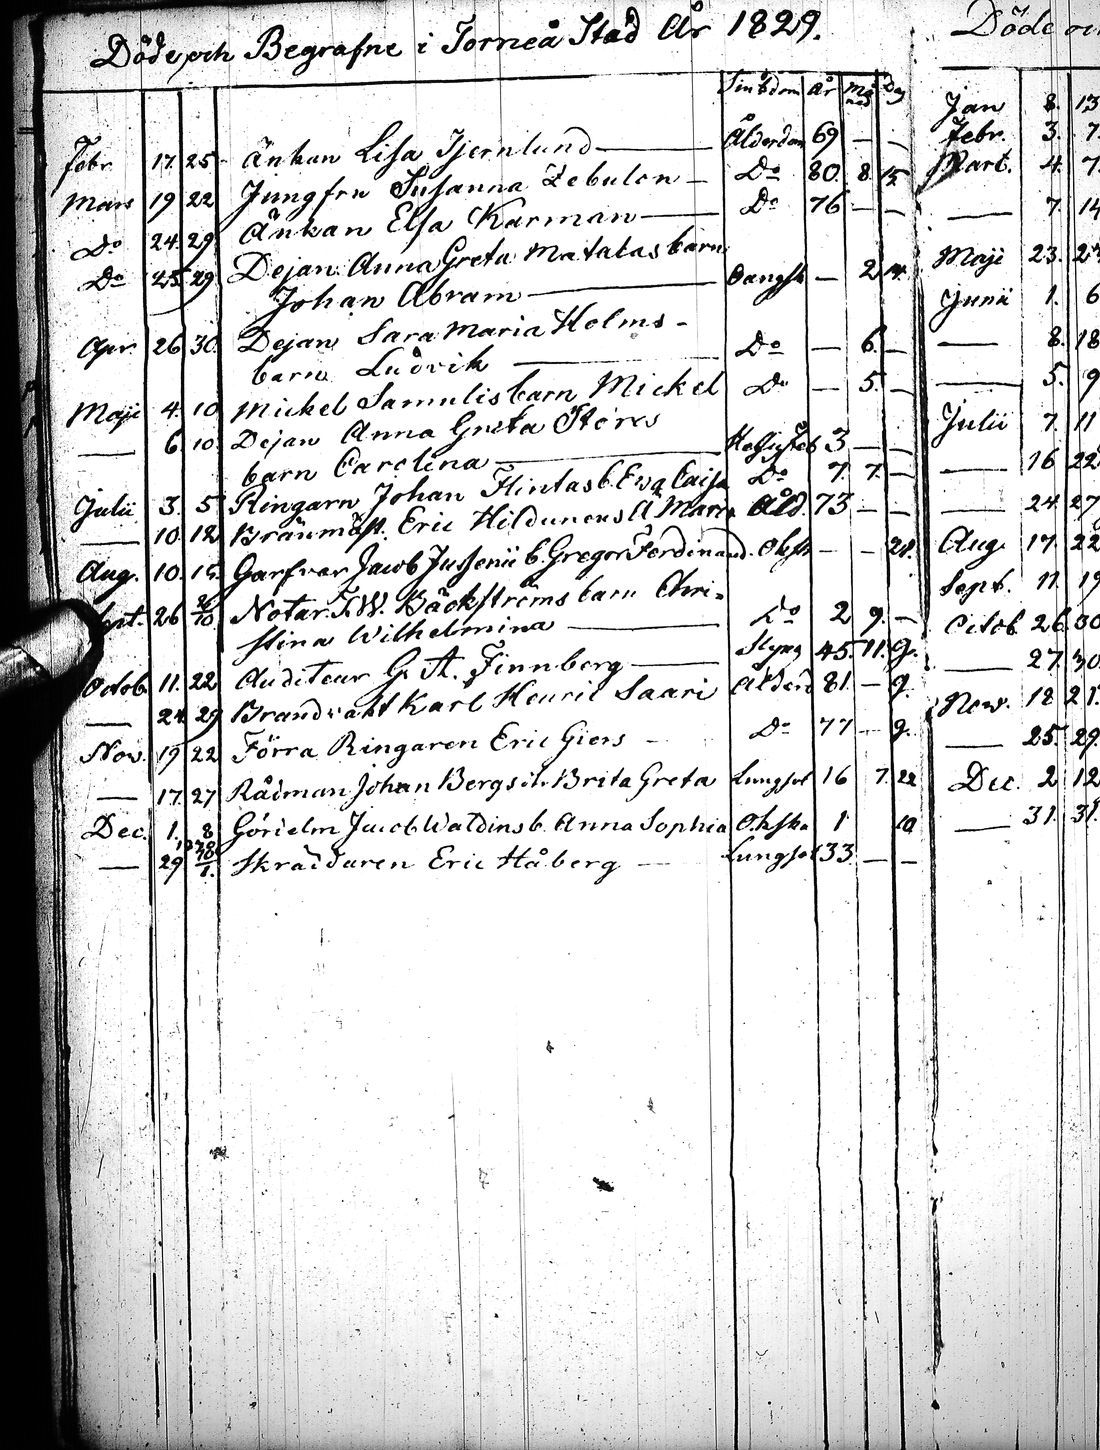 Döde och Begrafne i Torneå Stad År 1829.
Sinkdom År Må nad Dag
Febr. 17. 25. Änkan Lisa Tjernlund — Ålderdom 69 — —
Mars 19 22 Jungfru Susanna Zebulon — Do 80. 8. 15.
Do 24. 29. Änkan Elsa Karman — Do 76 — —
Do 25. 29 Dejan Anna Greta Matalas barn
Johan Abram — — 2
Apr. 26 30. Dejan Sara Maria Holms-
barn Ludvik — Do — 6. —
Maji 4. 10 Mickel Samulis barn Mickel Do — 5. —
— 6 10. Dejan Anna Greta Stores
barn Carolina — 3 — —
Julii 3. 5 Ringarn Johan Flintas b. Eva Caisa Do 7. 7. —
— 10. 12 Eric Hildunens Maria Åld. 73 — —
Aug. 10. 15. Garfvar Jacob Jussenii b. Gregor Ferdinand. — —
26 30/10. Notar. F. W. Bäckströms barn Chri-
stina Wilhelmina — Do 2 9. —
Octob. 11. 22 Auditeur G. A. Finnberg — 45. 11. 9.
— 24 29 Brandvakt Karl Henric Saari Ålderd 81. — 9.
Nov. 19 22 Förra Ringaren Eric Giers — Do 77 — 9.
— 17. 27 Rådman Johan Bergs Brita Greta Lungsot 16 7. 22
Dec. 1. 8 Jacob Waldins b. Anna Sophia 1 10
— 29 Skräddaren Eric Håberg — Lungsot 33. — —
Döde och
Jan 8. 13
Febr. 3. 7.
Mart. 4. 7.
— 7. 14
Maji 23.
Junii 1. 6
— 8. 18
— 5. 9
Julii 7. 11
— 16 22
— 24. 27
Aug. 17. 22
Sept. 11. 19
Octob. 26. 30
— 27. 30
Nov. 18 21.
— 25. 29.
Dec. 2 12
— 31. 31.